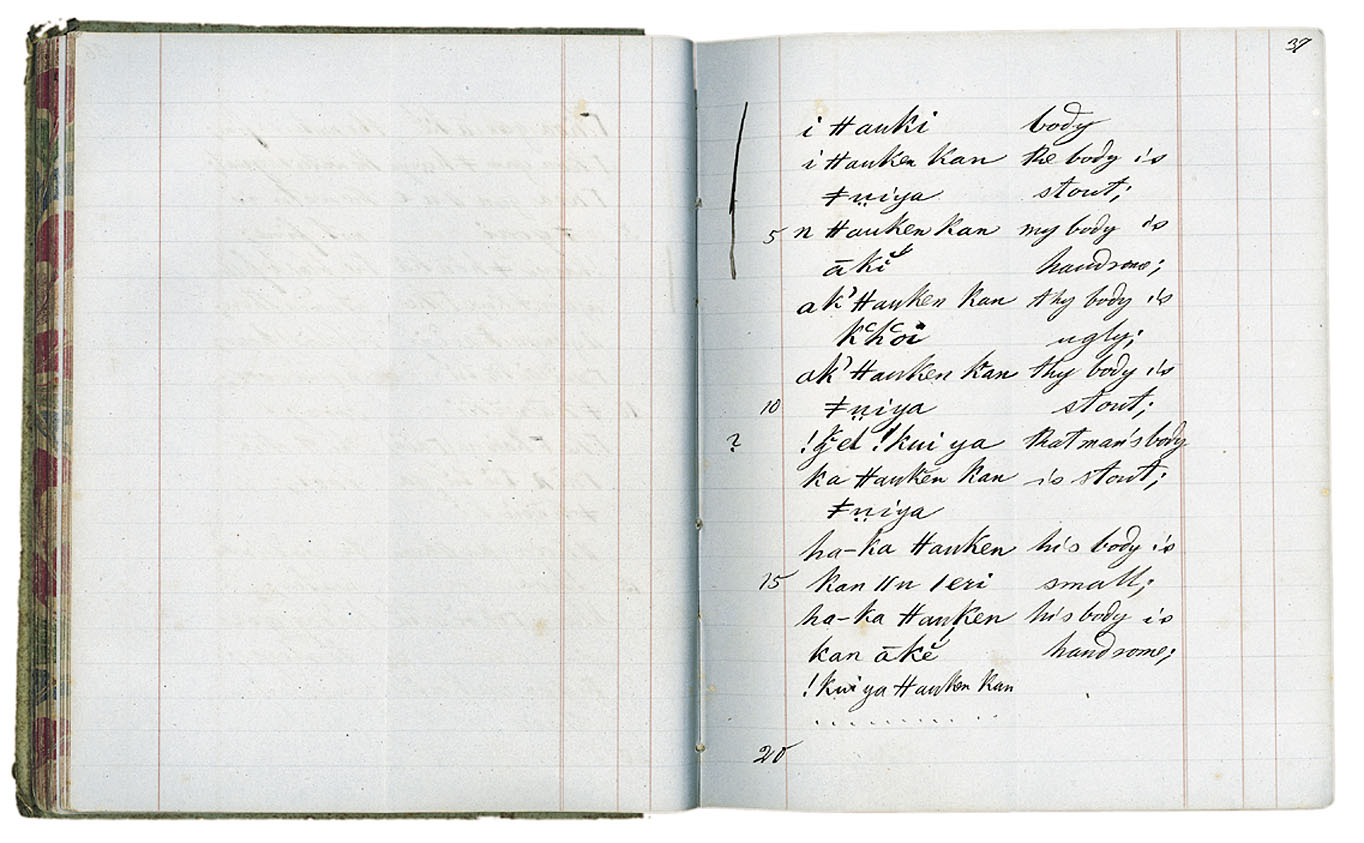 37
i ǂauki body
i ǂauken kan the body is
ǂṇiya stout;
5 n ǂauken kan my body is
ākĕ handsome;
ak' ǂauken kan thy body is
kʿhʿoï ugly;
ak' ǂauken kan thy body is
10 ǂṇiya stout;
? !kui ya that man's body
ka ǂauken kan is stout;
ǂṇiya
ha-ka ǂauken his body is
15 kan ǁn ǀeri small;
ha-ka ǂauken his body is
kan ākĕ handsome;
!kui ya ǂauken kan
. . . . . . . . . . .
20